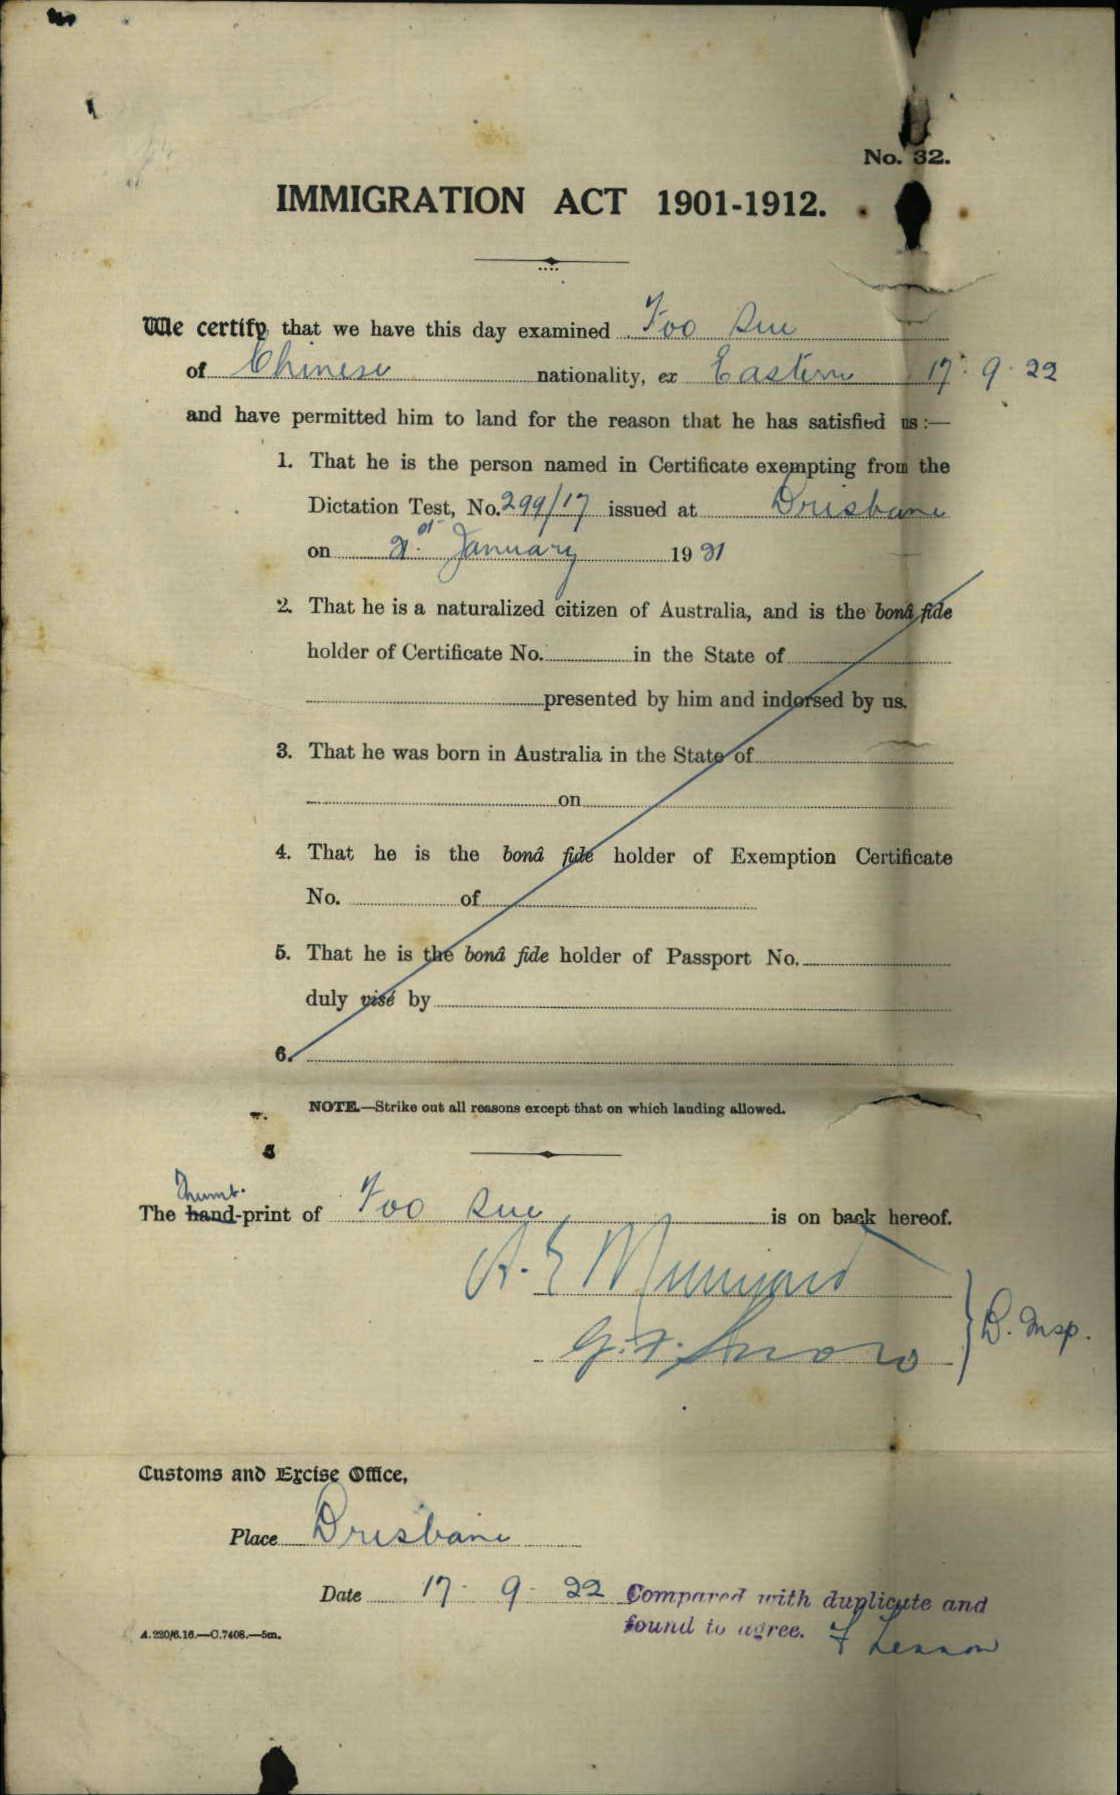 No. 32.
IMMIGRATION ACT 1901-1912.
We certify that we have this day examined Foo Sue
of Chinese nationality, ex Eastern 17. 9. 22
and have permitted him to land for the reason that he has satisfied us:—
1. That he is the person named in Certificate exempting from the
Dictation Test, No. 299/17 issued at Brisbane
on January 1921
2. That he is a naturalized citizen of Australia, and is the bonâ fide
holder of Certificate No. in the State of
presented by him and indorsed by us.
3. That he was born in Australia in the State of
on
4. That he is the bonâ fide holder of Exemption Certificate
No. of
5. That he is the bonâ fide holder of Passport No.
duly visé by
6.
NOTE.—Strike out all reasons except that on which landing allowed.
Thumb.
The hand-print of Foo Sue is on back hereof.
A. E
G. F. Snow
D. Insp.
Customs and Excise Office,
Place Brisbane
Date 17. 9. 22 Compared with duplicate and
found to agree. F Lennon
A.220/6.16.—C.7408.—5m.